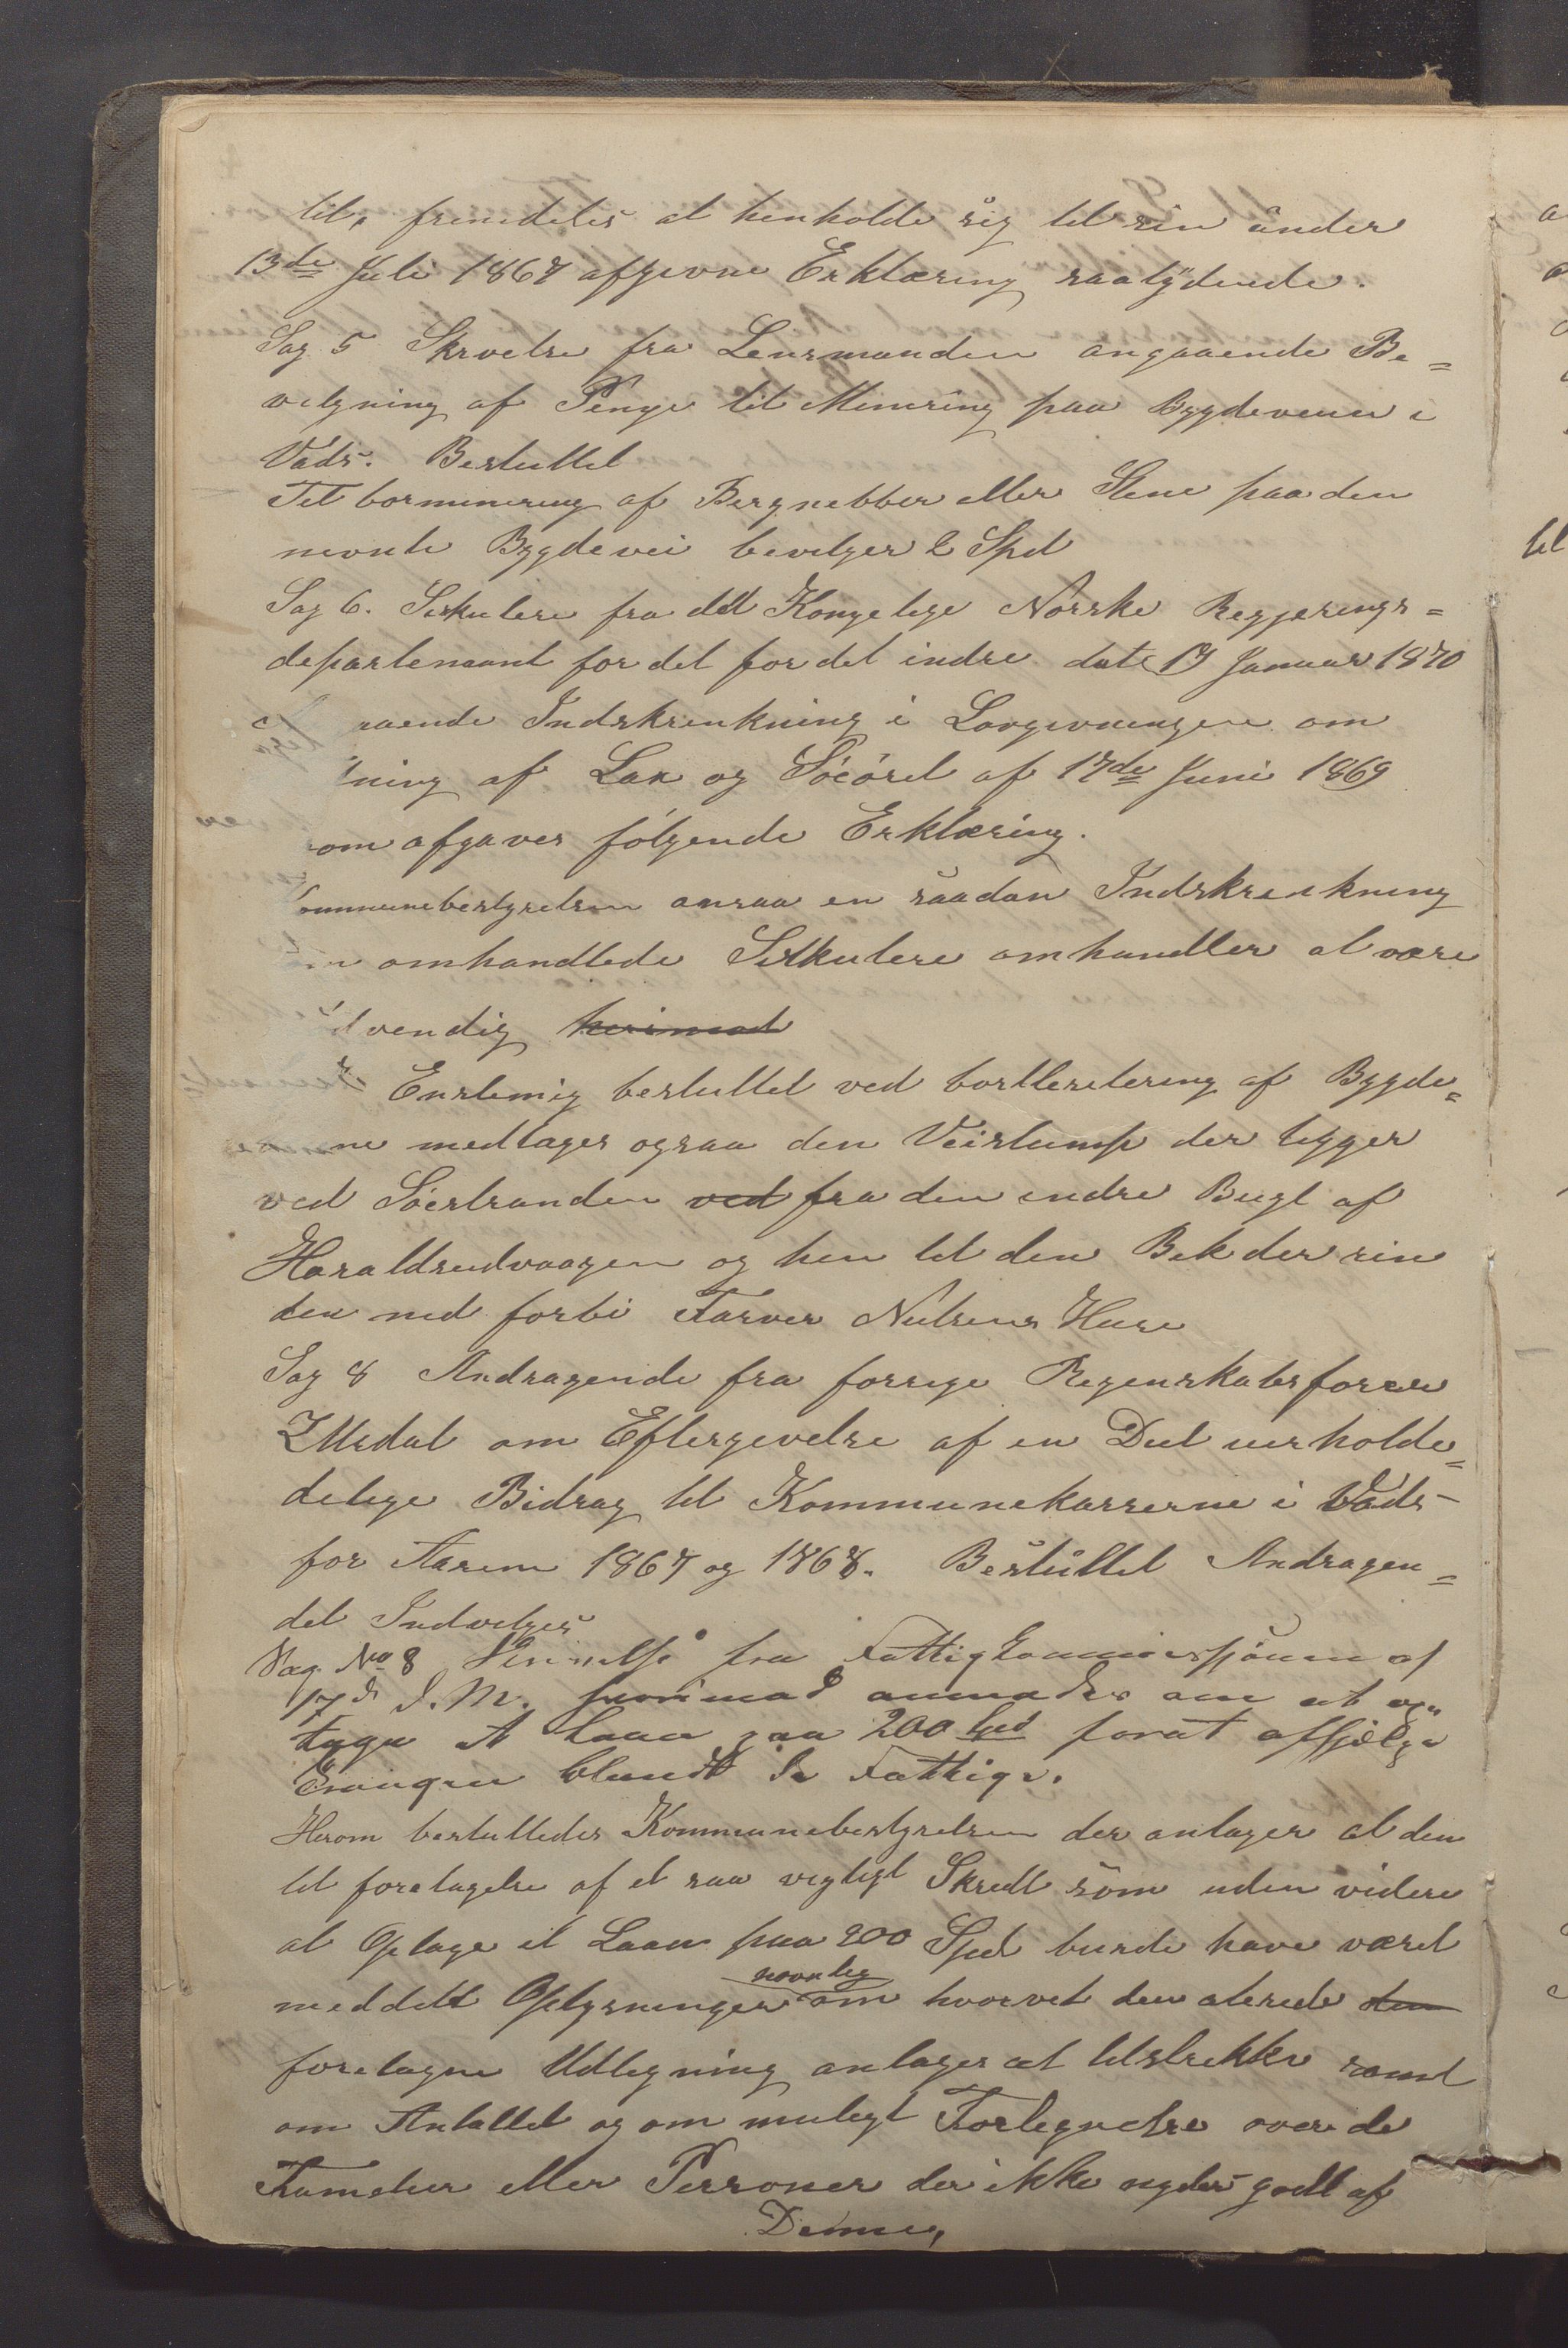 til, fremdeles at henholde sig til sin under
13de Juli 1867 afgivne Erklæring saalydende.
Sag 5 Skrvelse fra Lensmanden angaaende Be=
vilgning af Penge til Minering paa Bygdeveien i
Vads. Besluttet
Til borminering af Bergnebber eller Stene paa den
nevnte Bygdevei bevilges 2 Spd
Sag 6. Sirkulere fra det Kongelige Norske Regjerings=
departemant for det for det indre date 13 Januar 1870
aaende Indskrenkning i Lovgivningen om
ning af Lax og Söeörel af 17de Juni 1869
om afgaves følgende Erklæring.
ommunebestyrelsen ansaa en saadan Indskrenkning
omhandlede Sirkulere omhandler at være
dvendig herimod
Enstemig besluttet ved bortlesitering af Bygde=
ne medtages ogsaa den Veistump der ligger
ved Söestranden ved fra den indre Bugt af
Haraldseidvaagen og hen til den Bek der rin
den ned forbi Farver Nielsens Huse
Sag 8 Andragende fra forrige Regenskabsforer
Z Msdal om Eftergivelse af en Deel uerholde=
delige Bidrag til Kommunekasserne i Vads-
for Aarene 1867 og 1868. Besluttet Andragen=
det Indvilges
Sag No 8 fra Fattigkommissjonen af
17de d.M. hvorimod anmodes om at op"
tage et Laan paa 200 Spd forat afhjelpe
Trangen blandt de Fattige.
Herom besluttedes Kommunebestyrelsen der antager at den
til foretagelse af et saa vigtigt Skredt som uden videre
at Optage et Laan paa 200 Spd burde have været
meddelt Oplysninger navnlig om hvorvit den alerede den
foretagne Udligning antages at tilstrekke samt
om Antallet og om muligt Fortegnelse over de
Familier eller Personer der ikke nyder godt af
Denne,